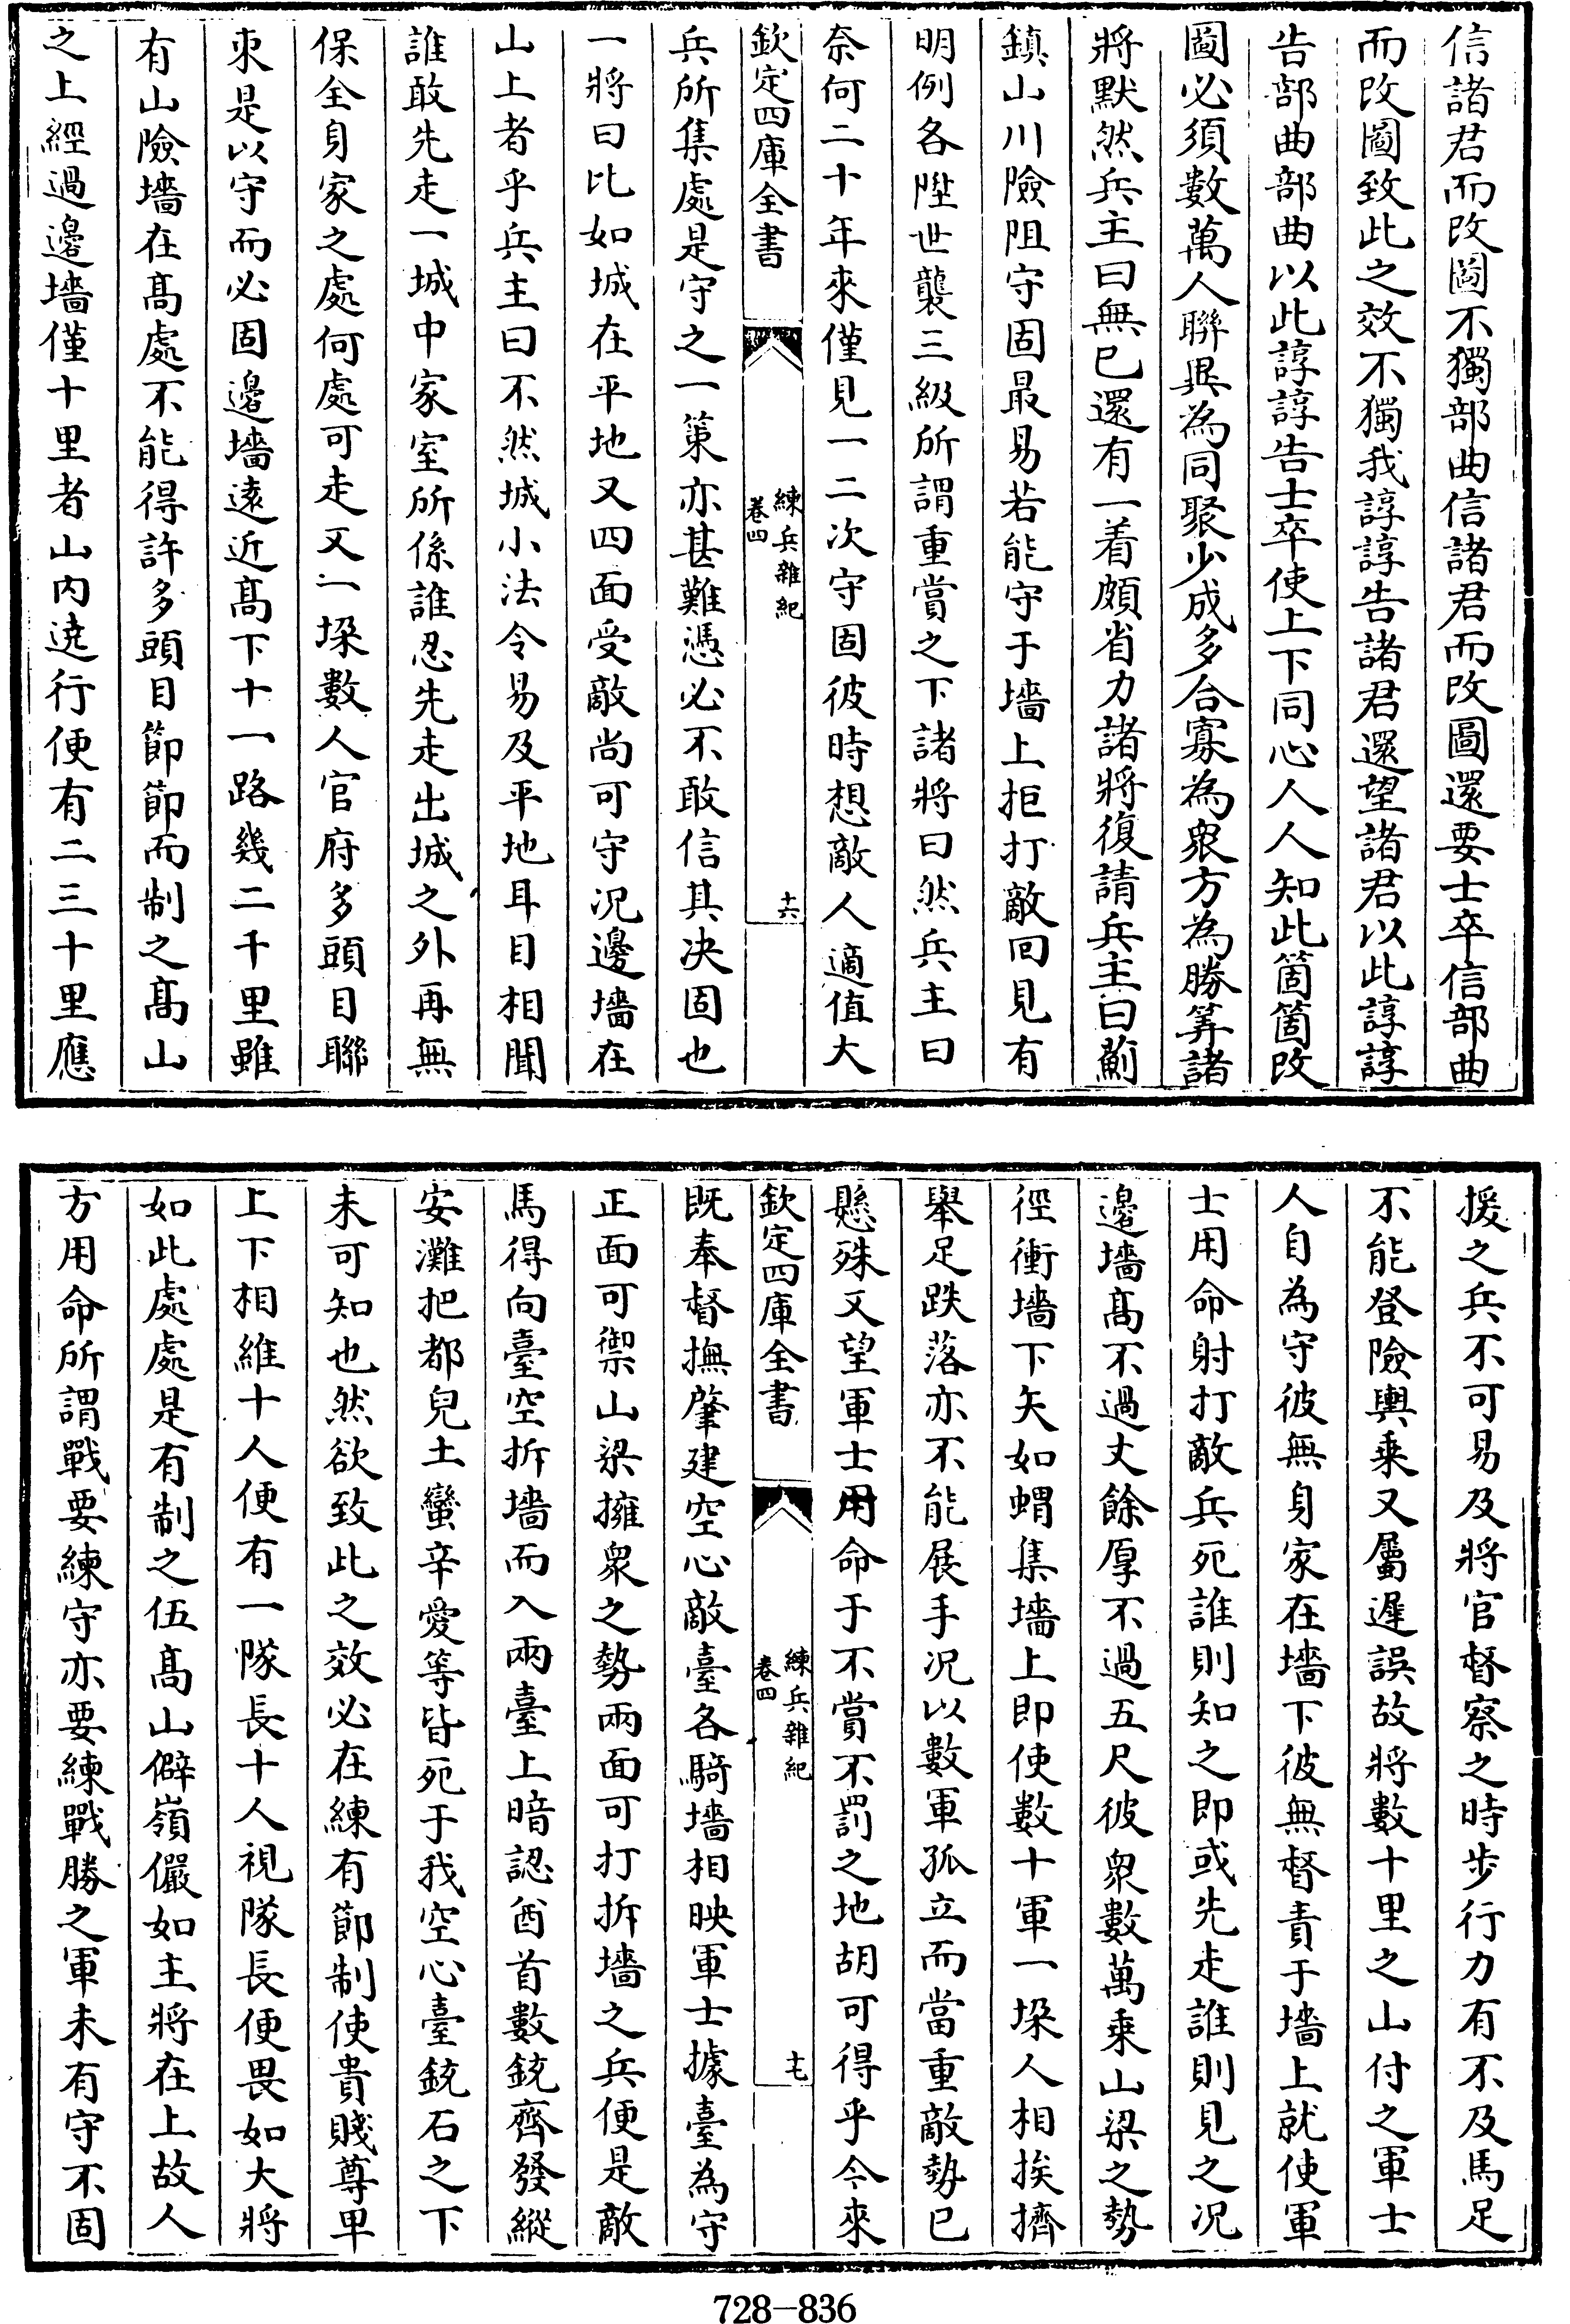 信諸君而改圖不獨部曲信諸君而改圖還要士卒信部曲
而改圖致此之效不獨我諄諄告諸君還望諸君以此諄諄
告部曲部曲以此諄諄告士卒使上下同心人人知此箇箇改
圖必須數萬人聯異為同聚少成多合寡為衆方為勝筭諸
將默然兵主曰無已還有一着頗省力諸將復請兵主曰薊
鎮山川險阻守固最易若能守于墻上拒打敵回見有
明例各陞世襲三級所謂重賞之下諸將曰然兵主曰
奈何二十年來僅見一二次守固彼時想敵人適值大
欽定四庫全書
練兵雜紀
卷四
十六
兵所集處是守之一策亦甚難憑必不敢信其決固也
一將曰比如城在平地又四面受敵尚可守况邊墻在
山上者乎兵主曰不然城小法令易及平地耳目相聞
誰敢先走一城中家室所係誰忍先走出城之外再無
保全身家之處何處可走又一垜數人官府多頭目聯
束是以守而必固邊墻遠近髙下十一路幾二千里雖
有山險墻在髙處不能得許多頭目節節而制之髙山
之上經過邊墻僅十里者山内遶行便有二三十里應
援之兵不可易及將官督察之時步行力有不及馬足
不能登險輿乘又屬遲誤故將數十里之山付之軍士
人自為守彼無身家在墻下彼無督責于墻上就使軍
士用命射打敵兵死誰則知之即或先走誰則見之况
邊墻髙不過丈餘厚不過五尺彼衆數萬乘山梁之勢
徑衝墻下矢如蝟集墻上即使數十軍一垜人相挨擠
舉足跌落亦不能展手况以數軍孤立而當重敵勢已
懸殊又望軍士用命于不賞不罰之地胡可得乎今來
欽定四庫全書
練兵雜紀
卷四
十七
既奉督撫肇建空心敵臺各騎墻相映軍士據臺為守
正面可禦山梁擁衆之勢兩面可打拆墻之兵便是敵
馬得向臺空拆墻而入兩臺上暗認酋首數銃齊發縱
安灘把都兒土蠻辛愛等皆死于我空心臺銃石之下
未可知也然欲致此之效必在練有節制使貴賤尊卑
上下相維十人便有一隊長十人視隊長便畏如大將
如此處處是有制之伍髙山僻嶺儼如主將在上故人
方用命所謂戰要練守亦要練戰勝之軍未有守不固
728-836